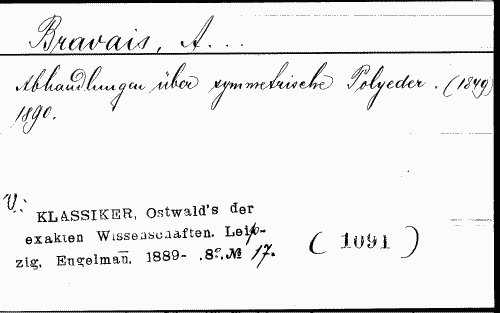 Bravais, A...
Abhandlungen über symmetrische Polyeder. (1849)
1890.
V.:
KLASSIKER, Ostwald's der
exakten Wissenschaften. Leip-
zig, Engelman̅. 1889- .8º. № 17.
( 1091 )